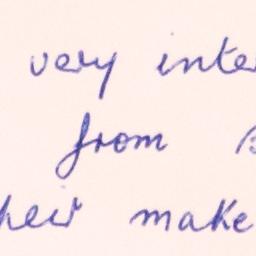 very inter
from
heir make